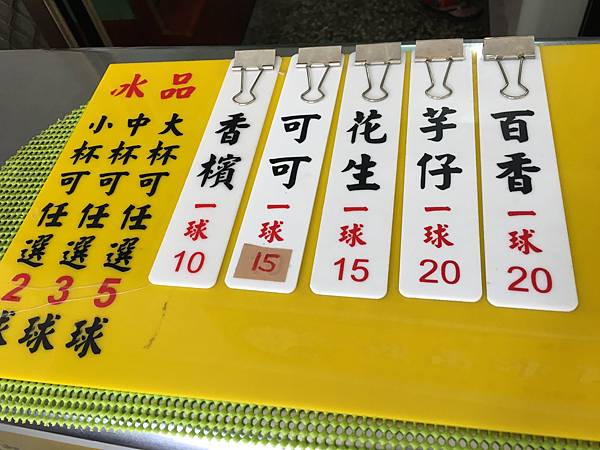 冰品
大杯可任選5球
中杯可任選3球
小杯可任選2球
香檳一球10
可可一球15
花生一球15
芋仔一球20
百香一球20